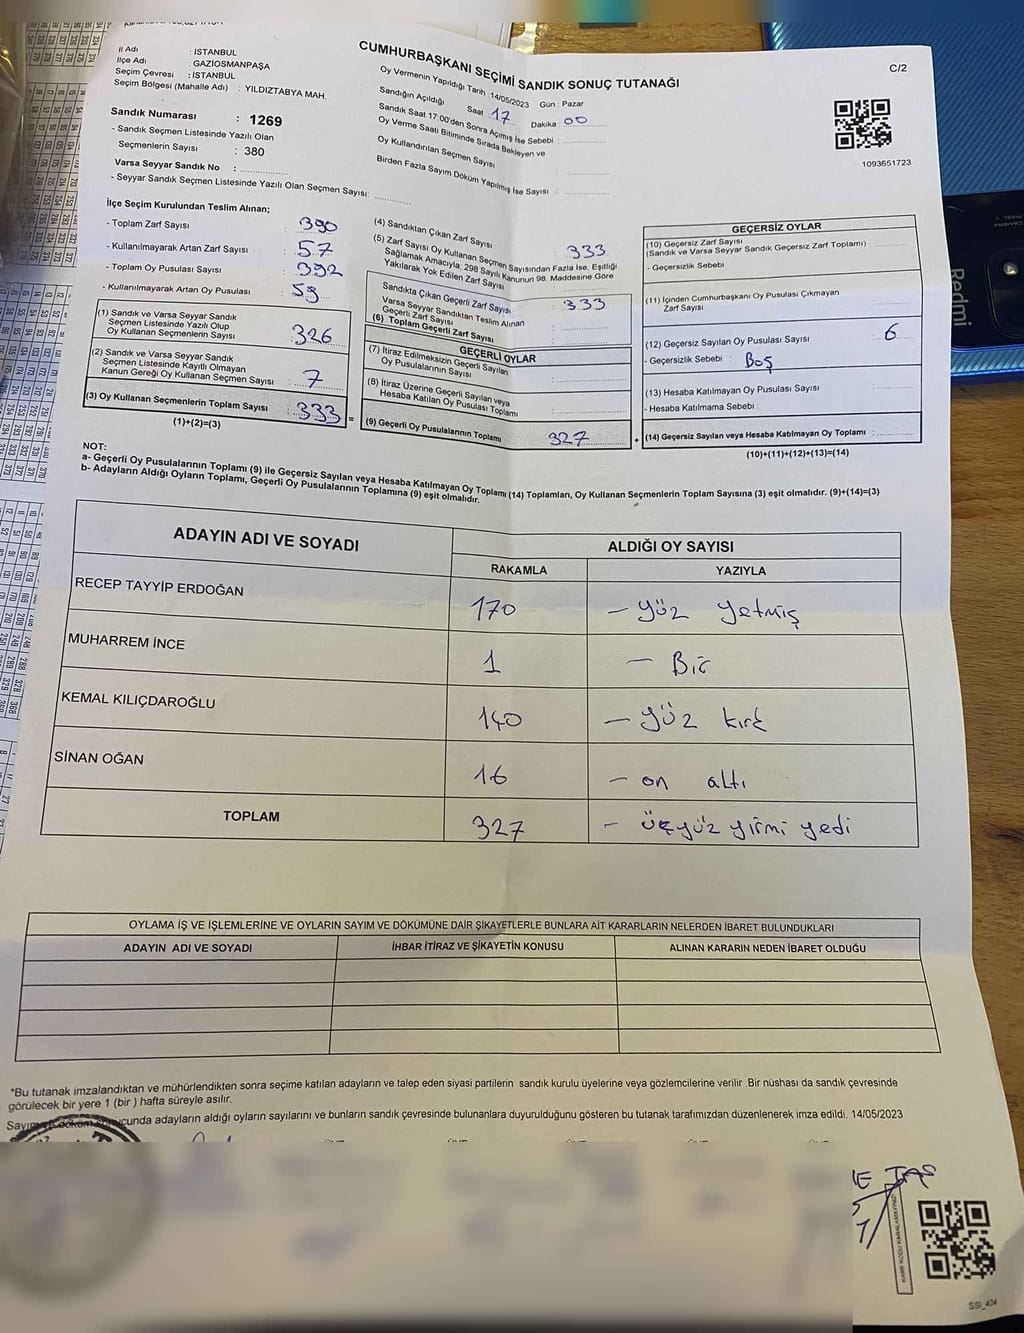 CUMHURBAŞKANI SEÇİMİ SANDIK SONUÇ TUTANAĞI
C/2
1093651723
İl Adı : İSTANBUL
İlçe Adı : GAZİOSMANPAŞA
Seçim Çevresi : İSTANBUL
Seçim Bölgesi (Mahalle Adı) : YILDIZTABYA MAH.
Sandık Numarası : 1269
- Sandık Seçmen Listesinde Yazılı Olan
Seçmenlerin Sayısı : 380
Varsa Seyyar Sandık No :
- Seyyar Sandık Seçmen Listesinde Yazılı Olan Seçmen Sayısı:
Oy Vermenin Yapıldığı Tarih 14/05/2023 Gün : Pazar
Sandığın Açıldığı Saat 17 Dakika : 00
Sandık Saat 17:00'den Sonra Açılmış İse Sebebi :
Oy Verme Saati Bitiminde Sırada Bekleyen ve
Oy Kullandırılan Seçmen Sayısı
Birden Fazla Sayım Döküm Yapılmış İse Sayısı :
İlçe Seçim Kurulundan Teslim Alınan;
- Toplam Zarf Sayısı : 390
- Kullanılmayarak Artan Zarf Sayısı : 57
- Toplam Oy Pusulası Sayısı : 392
- Kullanılmayarak Artan Oy Pusulası : 59
(1) Sandık ve Varsa Seyyar Sandık
Seçmen Listesinde Yazılı Olup
Oy Kullanan Seçmenlerin Sayısı : 326
(2) Sandık ve Varsa Seyyar Sandık
Seçmen Listesinde Kayıtlı Olmayan
Kanun Gereği Oy Kullanan Seçmen Sayısı : 7
(3) Oy Kullanan Seçmenlerin Toplam Sayısı : 333 =
(1)+(2)=(3)
(4) Sandıktan Çıkan Zarf Sayısı 333
(5) Zarf Sayısı Oy Kullanan Seçmen Sayısından Fazla İse, Eşitliği
Sağlamak Amacıyla; 298 Sayılı Kanunun 98. Maddesine Göre
Yakılarak Yok Edilen Zarf Sayısı
Sandıkta Çıkan Geçerli Zarf Sayısı : 333
Varsa Seyyar Sandıktan Teslim Alınan
Geçerli Zarf Sayısı :
(6) Toplam Geçerli Zarf Sayısı
GEÇERLİ OYLAR
(7) İtiraz Edilmeksizin Geçerli Sayılan
Oy Pusulalarının Sayısı :
(8) İtiraz Üzerine Geçerli Sayılan veya
Hesaba Katılan Oy Pusulası Toplamı :
(9) Geçerli Oy Pusulalarının Toplamı 327 +
GEÇERSİZ OYLAR
(10) Geçersiz Zarf Sayısı
(Sandık ve Varsa Seyyar Sandık Geçersiz Zarf Toplamı) :
- Geçersizlik Sebebi :
(11) İçinden Cumhurbaşkanı Oy Pusulası Çıkmayan
Zarf Sayısı
(12) Geçersiz Sayılan Oy Pusulası Sayısı : 6
- Geçersizlik Sebebi : Boş
(13) Hesaba Katılmayan Oy Pusulası Sayısı :
- Hesaba Katılmama Sebebi :
(14) Geçersiz Sayılan veya Hesaba Katılmayan Oy Toplamı :
(10)+(11)+(12)+(13)=(14)
NOT:
a- Geçerli Oy Pusulalarının Toplamı (9) ile Geçersiz Sayılan veya Hesaba Katılmayan Oy Toplamı (14) Toplamları, Oy Kullanan Seçmenlerin Toplam Sayısına (3) eşit olmalıdır. (9)+(14)=(3)
b- Adayların Aldığı Oyların Toplamı, Geçerli Oy Pusulalarının Toplamına (9) eşit olmalıdır.
ADAYIN ADI VE SOYADI ALDIĞI OY SAYISI
RAKAMLA YAZIYLA
RECEP TAYYİP ERDOĞAN 170 - yüz yetmiş
MUHARREM İNCE 1 - Bir
KEMAL KILIÇDAROĞLU 140 - yüz kırk
SİNAN OĞAN 16 - on altı
TOPLAM 327 - üçyüz yirmi yedi
OYLAMA İŞ VE İŞLEMLERİNE VE OYLARIN SAYIM VE DÖKÜMÜNE DAİR ŞİKAYETLERLE BUNLARA AİT KARARLARIN NELERDEN İBARET BULUNDUKLARI
ADAYIN ADI VE SOYADI İHBAR İTİRAZ VE ŞİKAYETİN KONUSU ALINAN KARARIN NEDEN İBARET OLDUĞU
*Bu tutanak imzalandıktan ve mühürlendikten sonra seçime katılan adayların ve talep eden siyasi partilerin sandık kurulu üyelerine veya gözlemcilerine verilir. Bir nüshası da sandık çevresinde
görülecek bir yere 1 (bir ) hafta süreyle asılır.
Sayım ve döküm sonucunda adayların aldığı oyların sayılarını ve bunların sandık çevresinde bulunanlara duyurulduğunu gösteren bu tutanak tarafımızdan düzenlenerek imza edildi. 14/05/2023
SSI_404
Redmi